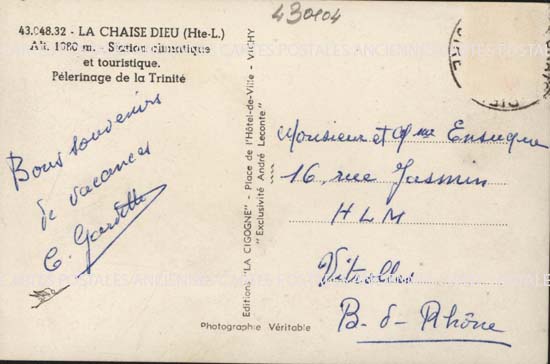 430104
43.048.32 - LA CHAISE DIEU (Hte-L.)
Alt. 1080 m. - Station climatique
et touristique.
Pélerinage de la Trinité
Bons souvenirs
de vacances
Editions "LA CIGOGNE" - Place de l'Hôtel-de-Ville - VICHY
"Exclusivité André Leconte"
Monsieur et Mme
16 rue Jasmin
HLM
Vitrolles
B-d-Rhône
Photographie Véritable